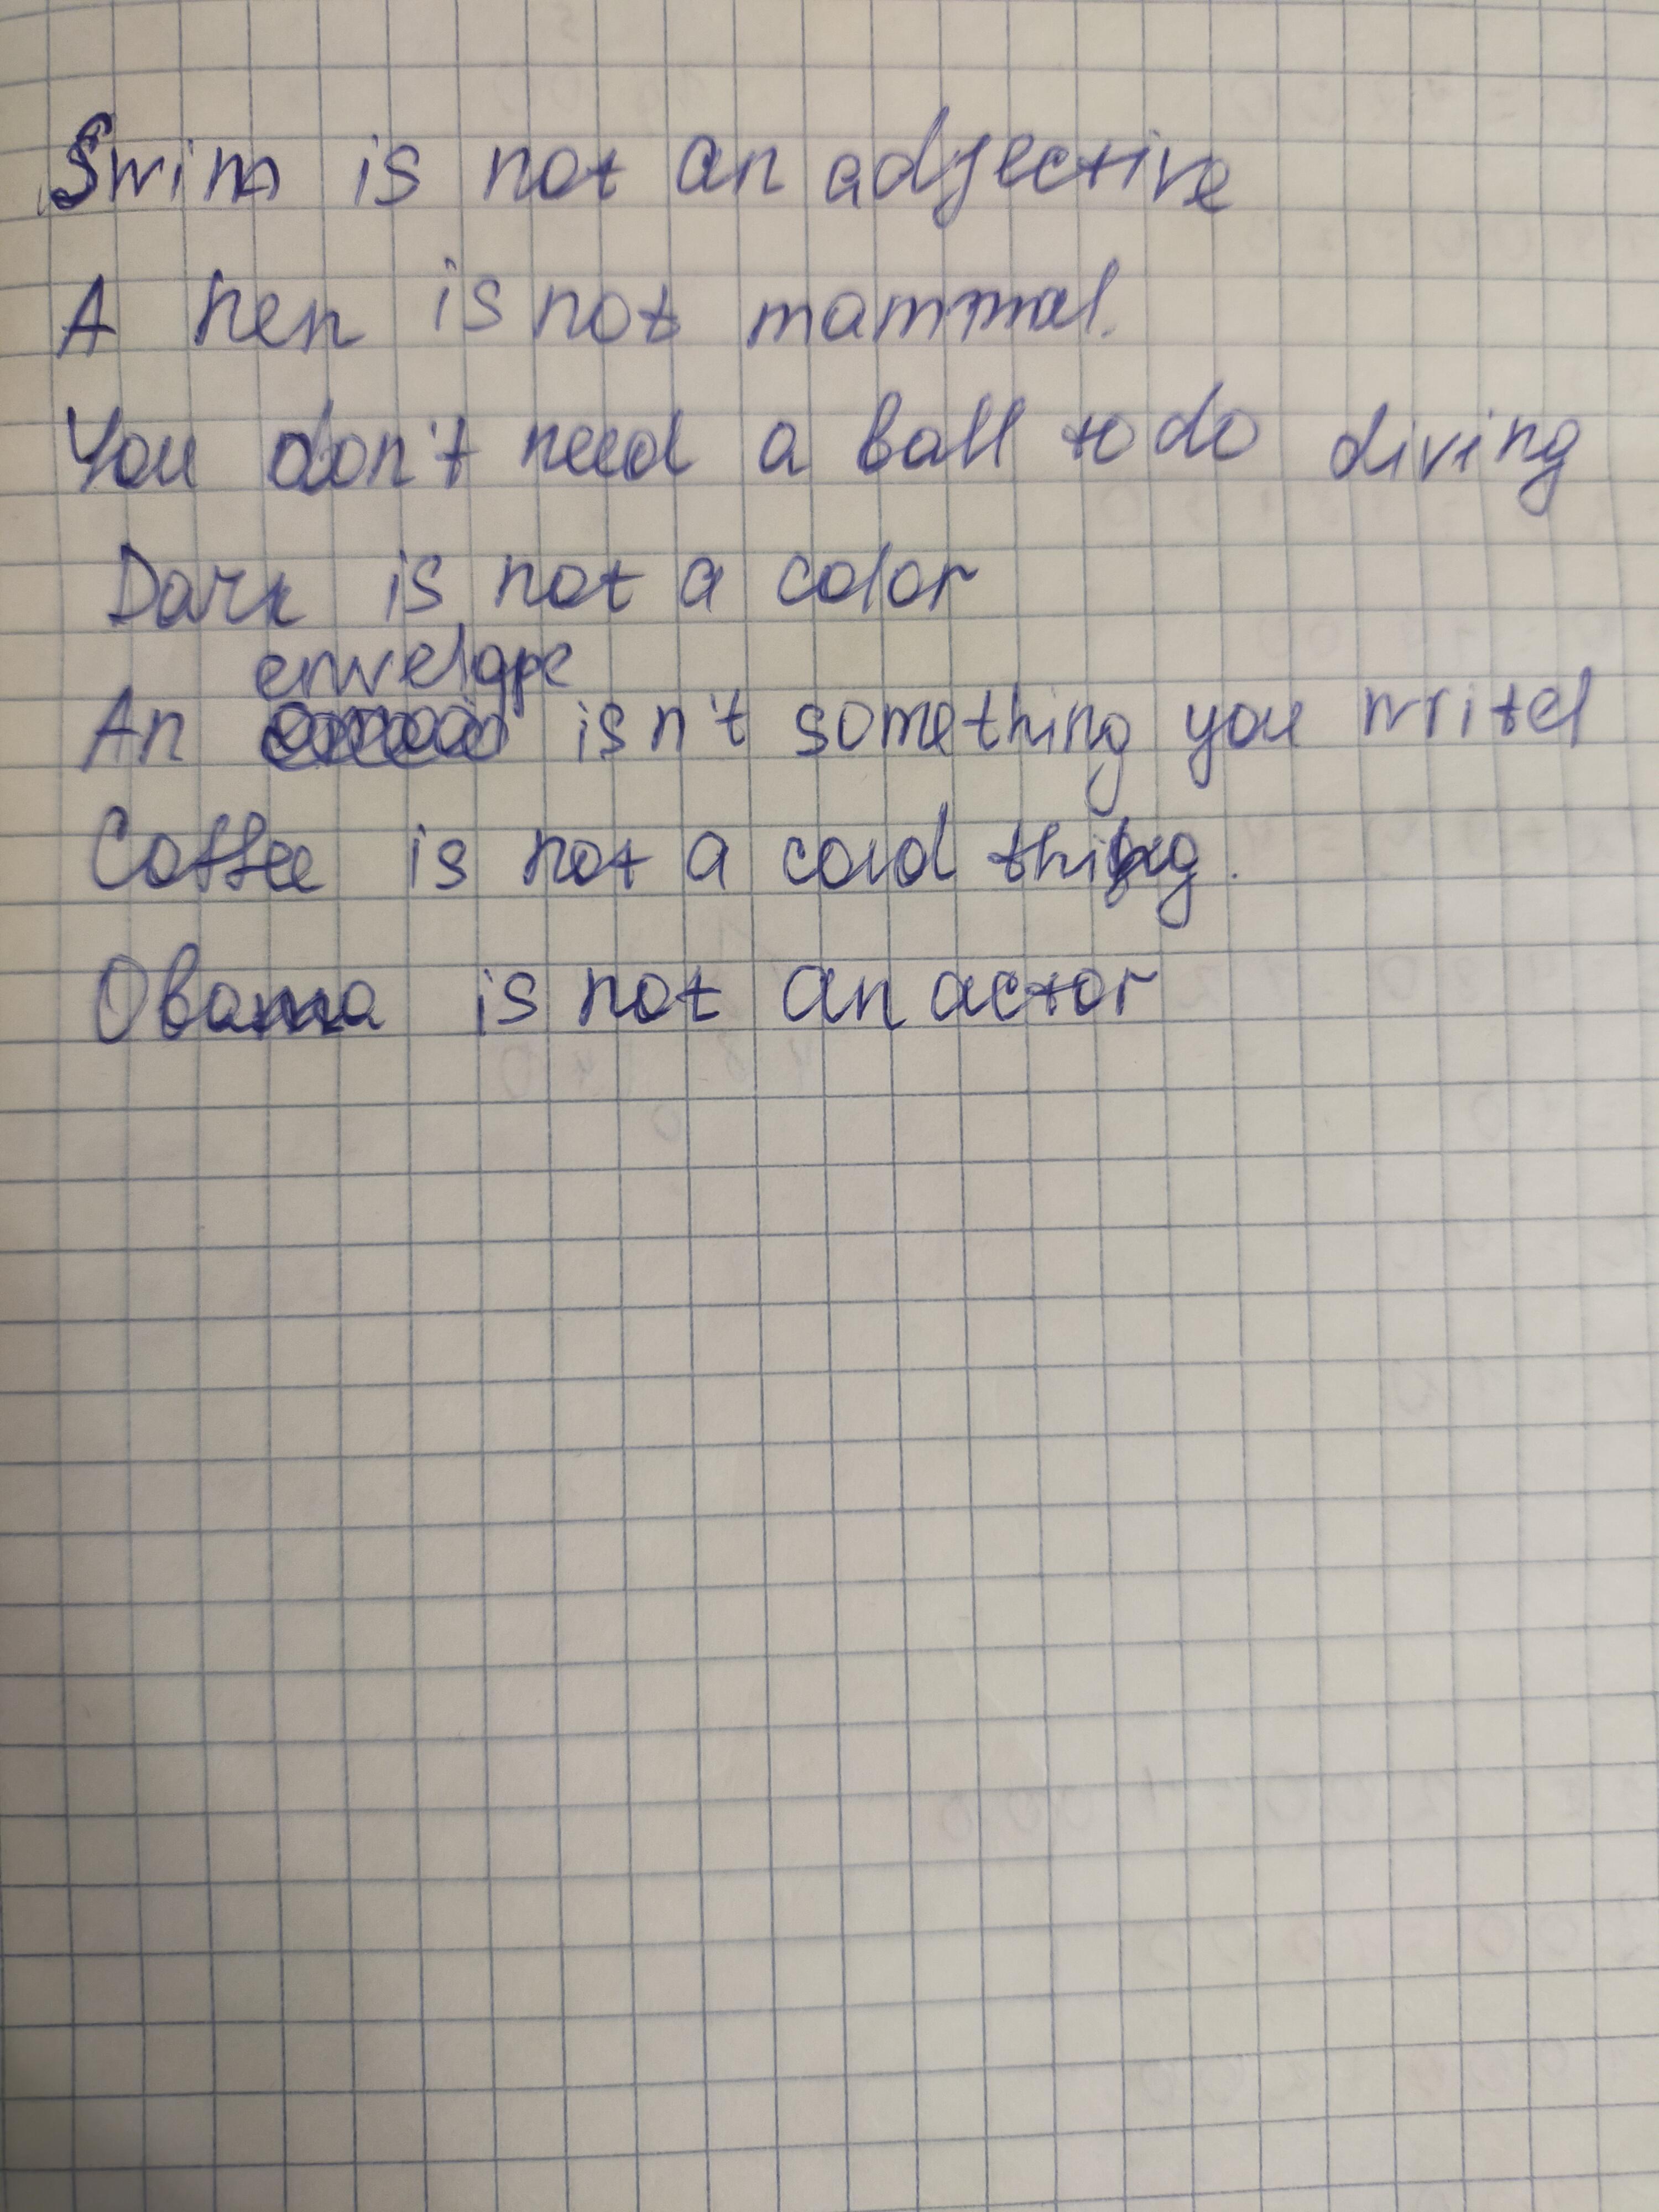 Swim is not an adjective
A hen is not mammal.
You don't need a ball to do diving
Dark is not a color
envelope
An isn't something you
Coffee is not a cold thing.
Obama is not an actor